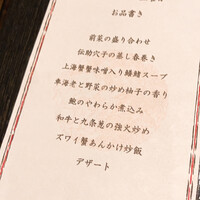 お品書き
前菜の盛り合わせ
伝助穴子の蒸し春巻き
上海蟹蟹味噌入り鱶鰭スープ
車海老と野菜の炒め柚子の香り
鮑のやわらか煮込み
和牛と九条葱の強火炒め
ズワイ蟹あんかけ炒飯
デザート